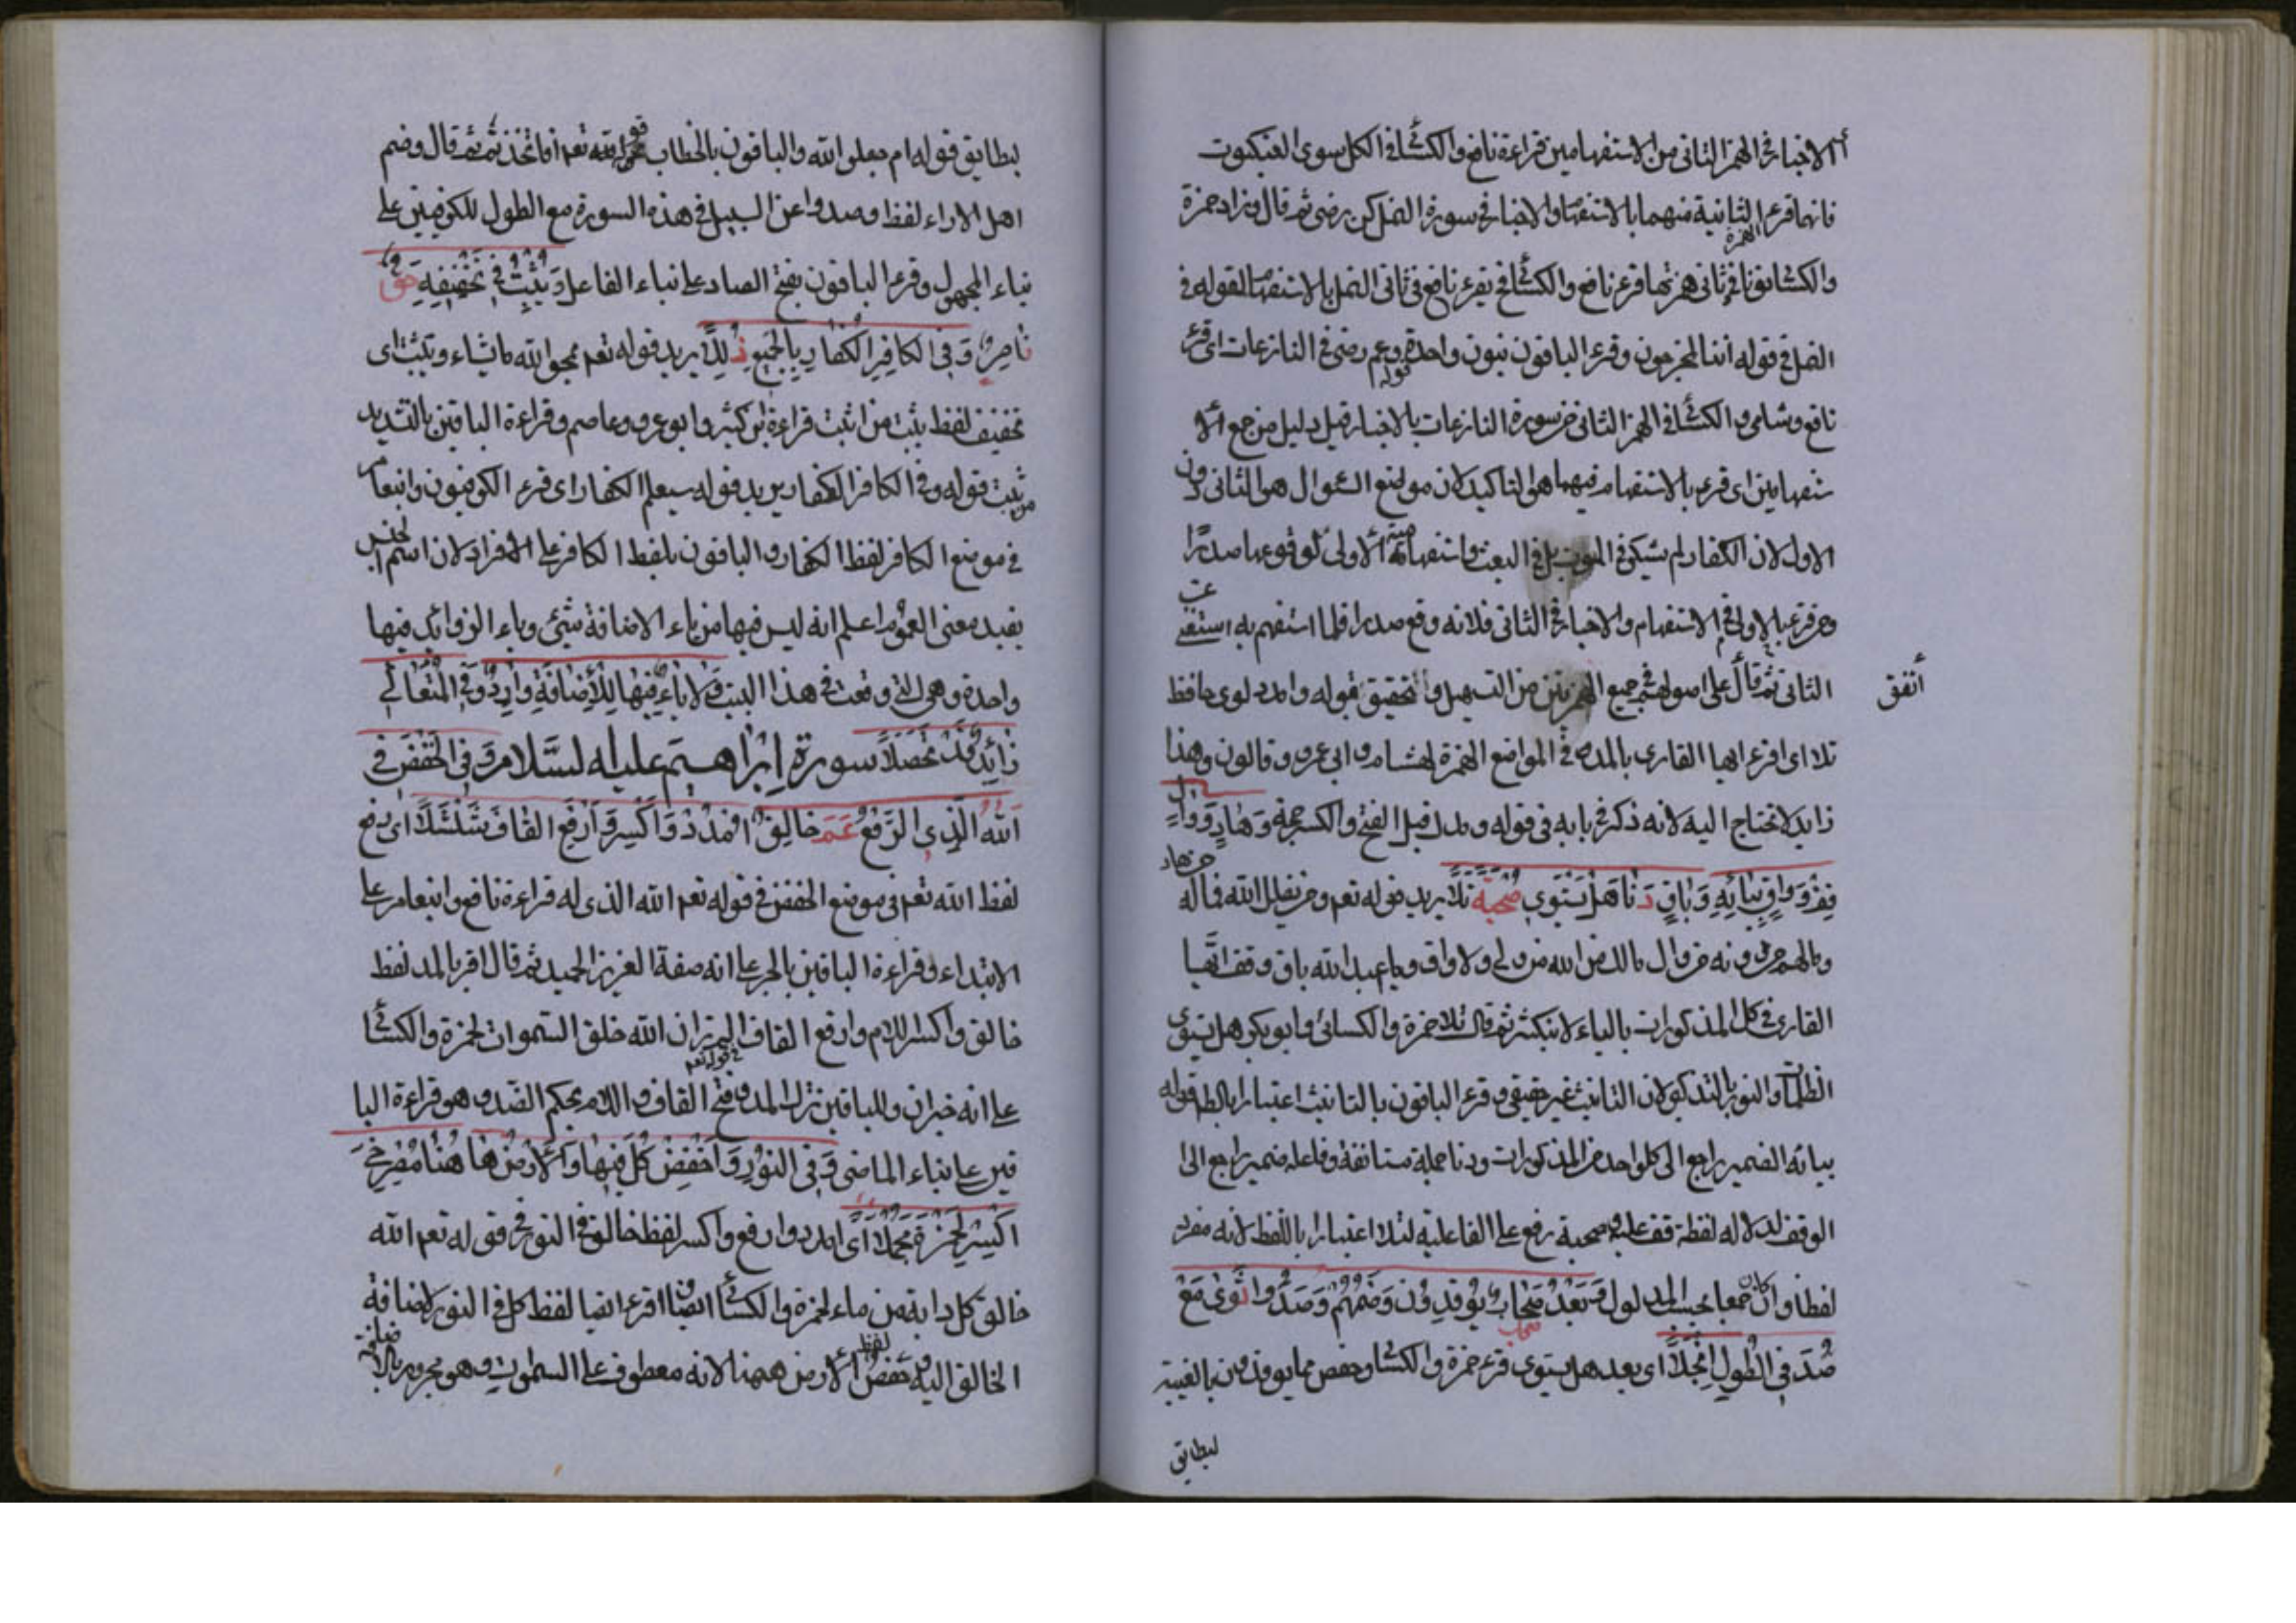 الاخبار في الهمز الثاني من الاستفهامين قراءة نافع والكسائي في الكل سوى العنكبوت
فانهما قرءا الثانية منهما بالاستفهام والاخبار في سورة النمل كن رضى ثم قال وزاد حمزة
والكسائي نونا في ثاني همزتها قرء نافع والكسائي يقرء نافع في ثاني النمل بالاستفهام لقوله في
النمل في قوله أئنا لمخرجون وقرء الباقون بنون واحدة قوله وعم رضى في النازعات اى قرء
نافع وشامي والكسائي في الهمز الثاني من سورة النازعات بالاخبار قيل دليل من جمع الا
ستفهامين اى قرء بالاستفهام فيهما هو التاكيد لان موضع السؤال هو الثاني دون
الاول لان الكفار لم يشك في الموت بل في البعث واستفهامية الاولى لوقوعها صدرا
ومن قرء بالاولى في الاستفهام والاخبار في الثاني فلانه وقع صدرا فلما استفهم به استغنى عن
الثاني ثم قال على اصولهم في جميع الهمزتين من التسهيل والتحقيق بقوله وامدد لوى حافظ
اتفق
تلا اى اقرء ايها القارى بالمد في المواضع الهمزة لهشام وابي عمرو وقالون وهذا
زايد لا تحتاج اليه لانه ذكر في بابه في قوله ومدك قبل الفتح والكسر حجة وَهَادٍ وَوَالٍ
قِفْ وَوَاقٍ بِيَائِهِ وَبَاقٍ دَنَا هَلْ يَسْتَوِى صُحْبَةٌ تَلَا يريد قوله تعم ومن يضلل الله فماله من هاد
ومالهم من دونه من وال مالك من الله من ولي ولا واق وما عند الله باق وقف ايها
القارى في كل المذكورات بالياء لابن كثير ثم قال تلا حمزة والكسائي وابو بكر هل يستوى
الظلمات والنور بالتذكير لان التانيث غير حقيقي وقرء الباقون بالتانيث اعتبارا بالظاهر قوله
بيائه الضمير راجع الى كل واحد من المذكورات ودنا جملة مستانفة وفاعله ضمير راجع الى
الوقف لدلالة لفظة قف عليه وصحبة رفع على الفاعلية لتلا اعتبارا باللفظ لانه مفرد
لفظا وان كان جمعا بحسب المدلول وَبَعْدُ صِحَابٌ يُوقِدُونَ وَضَمُّهُمْ وَصَدُّوا ثَوَى مَعْ
صُدَّ فِى الطَّوْلِ انْجَلَا اى بعد هل يستوى قرء حمزة والكسائي وحفص مما يوقدون بالغيبة
ليطابق
ليطابق قوله ام جعلوا لله والباقون بالخطاب قوله تعم أفاتخذتم ثم قال وضم
اهل الاداء لفظ وصدوا عن السبيل في هذه السورة مع الطول للكوفيين على
بناء المجهول وقرء الباقون بفتح الصاد على بناء الفاعل وَيُثْبِتُ فِى تَخْفِيفِهِ حَقُّ
نَاصِرٍ وَفِى الكَافِرِ الكُفَّارُ بِالجَمْعِ ذُلِّلَا يريد قوله تعم يمحو الله ما يشاء ويثبت اى
تخفيف لفظ يثبت من اثبت قراءة ابن كثير وابو عمرو وعاصم وقراءة الباقين بالتشديد
من ثبت قوله وفي الكافر الكفار يريد قوله سيعلم الكفار اى قرء الكوفيون وابن عامر
في موضع الكافر لفظ الكفار والباقون بلفظ الكافر على الافراد لان اسم الجنس
يفيد معنى العموم اعلم انه ليس فيها من ياء الاضافة شئ وياء الزوائد فيها
واحدة وهي التي وقعت في هذا البيت وَلَا يَاءٌ فِيهَا لِلْأِضَافَةِ وَارِدٌ وَفِي المُتَعَالِى
زَائِدٌ قَدْ تَحَصَّلَا سورة إبراهيم عليه السلام وَفِى الخَفْضِ فِى
اللهِ الَّذِى الرَّفْعُ عَمَّ خَالِقُ امْدُدْ وَاكْسِرْ وَارْفَعِ القَافَ شُلْشُلَا اى رفع
لفظ الله تعم في موضع الخفض في قوله تعم الله الذي له قراءة نافع وابن عامر على
الابتداء وقراءة الباقين بالجر على انه صفة العزيز الحميد ثم قال اقرء بالمد لفظ
خالق واكسر اللام وارفع القاف في قوله تعم الم تر ان الله خلق السموات لحمزة والكسائي
على انه خبر ان وللباقين ترك المد وفتح القاف واللام بحكم الضد وهو قراءة البا
قين على بناء الماضي وَفِى النُّورِ وَاخْفِضْ كُلَّ فِيهَا وَالأَرْضَ هَا هُنَا مُصْرِخِىَّ
اكْسِرْ لِحَمْزَةَ مُجْمِلَا اى امدد وارفع واكسر لفظ خالق في النور في قوله تعم الله
خالق كل دابة من ماء لحمزة والكسائي ايضا واقرء ايضا لفظ كل في النور لاضافة
الخالق اليه وخفض لفظ الارض ههنا لانه معطوف على السموات وهو مجرور بالاضافة